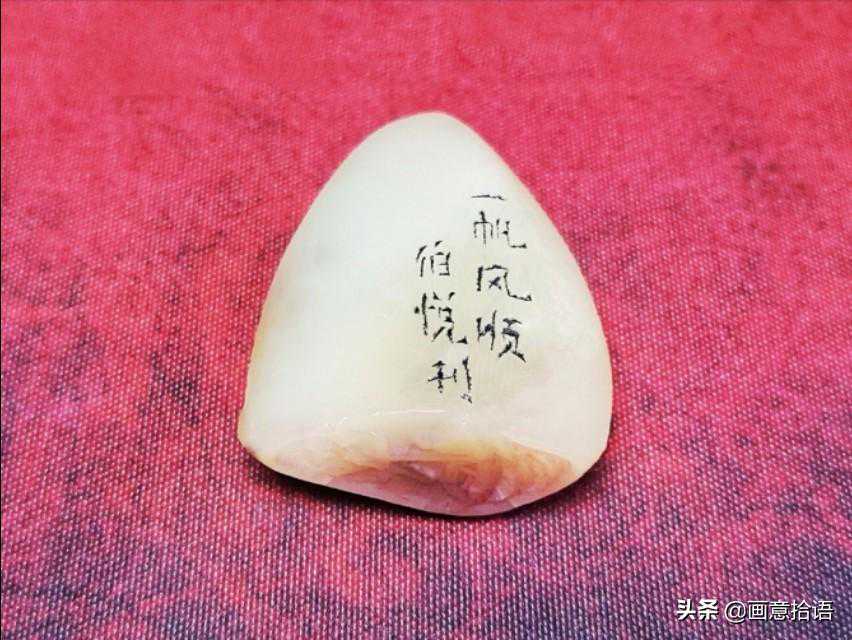 一帆风顺
伯悦刊
头条 @画意拾语